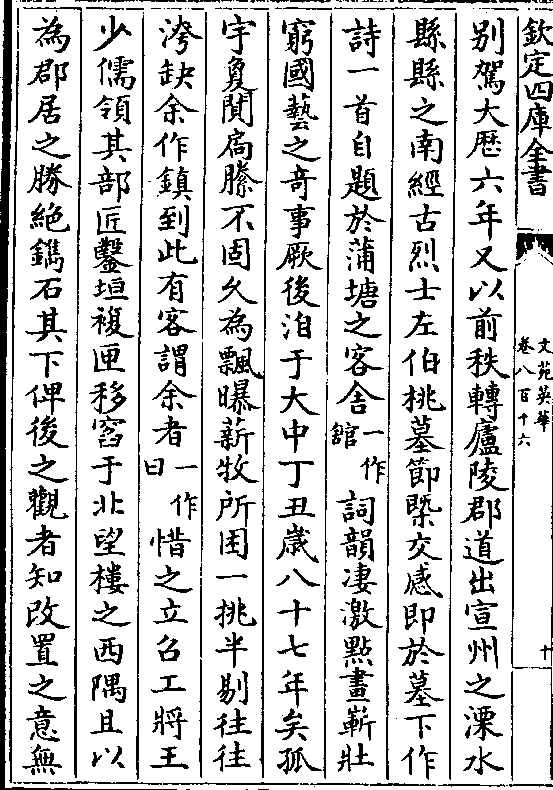 欽定四庫全書
文苑英華
卷八百十六
十
别駕大歷六年又以前秩轉廬陵郡道出宣州之溧水
縣縣之南經古烈士左伯桃墓節槩交感即於墓下作
詩一首自題於蒲塘之客舍一作館詞韻凄激點畫嶄壯
窮國藝之奇事厥後洎于大中丁丑歲八十七年矣孤
宇夐閴扄縢不固久為飄曝薪牧所困一挑半剔往往
洿缺余作鎮到此有客謂余者一作曰惜之立召工將王
少儒領其部匠鑿垣複匣移窆于北望樓之西隅且以
為郡居之勝絶鐫石其下俾後之觀者知改置之意無